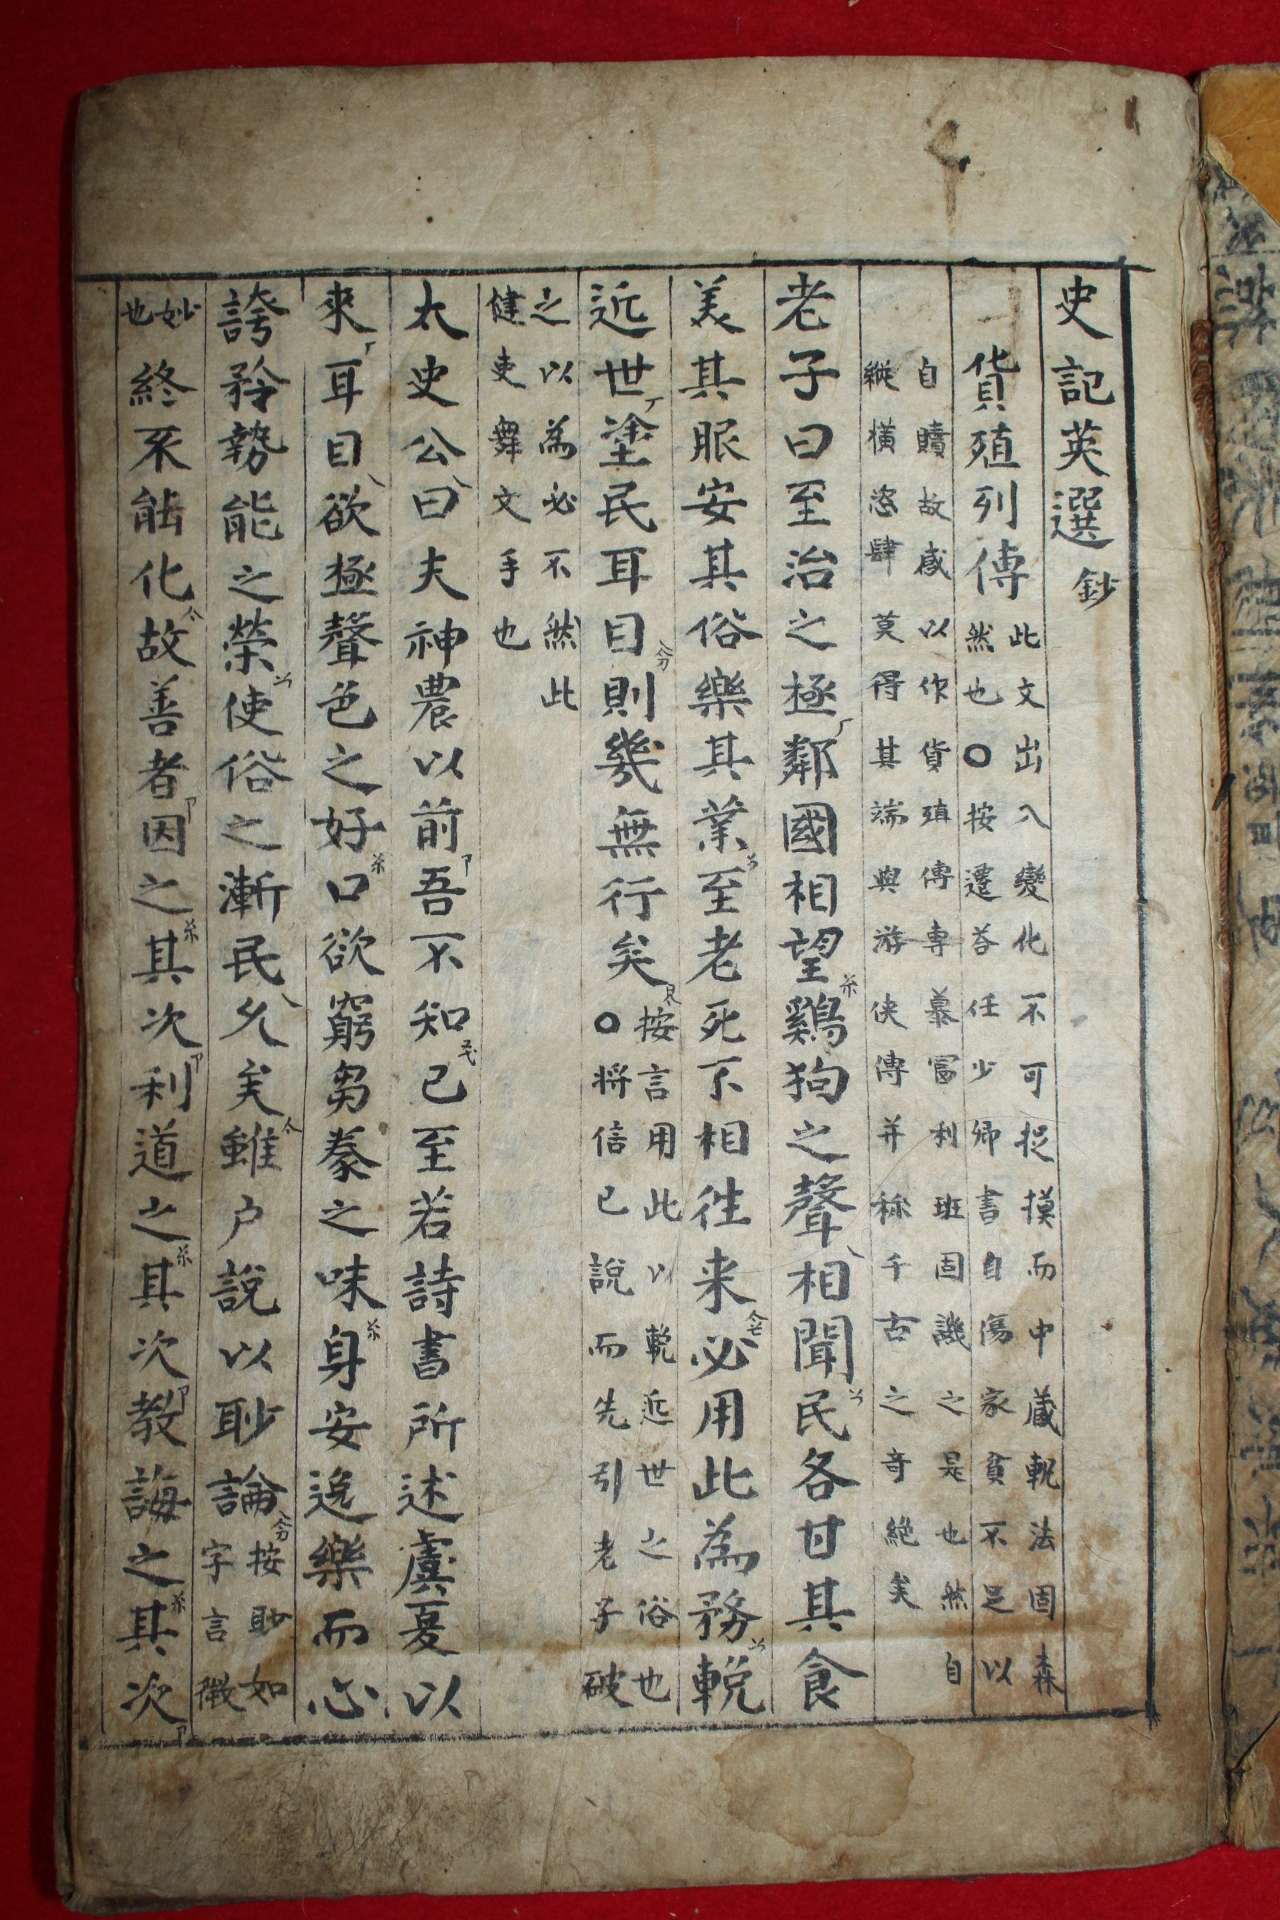 史記英選鈔
貨殖列傳此文出入變化不可捉摸而中藏軌法固森
然也○按遷答任少卿書自傷家貧不足以
自贖故感以作貨殖傳專慕富利班固譏之是也然自
縱橫恣肆莫得其端與游俠傳并称千古之奇絶矣
老子曰至治之極鄰國相望鷄狗之聲相聞民各甘其食
美其服安其俗樂其業至老死不相往来必用此為務輓
近世塗民耳目則幾無行矣按言用此以輓近世之俗也
○將信已說而先引老子破
之以為必不然此
健吏舞文手也
太史公曰夫神農以前吾不知已至若詩書所述虞夏以
來耳目欲極聲色之好口欲窮芻豢之味身安逸樂而心
誇矜勢能之榮使俗之漸民久矣雖户說以眇論按眇如
字言微
妙
也
終不能化故善者因之其次利道之其次教誨之其次